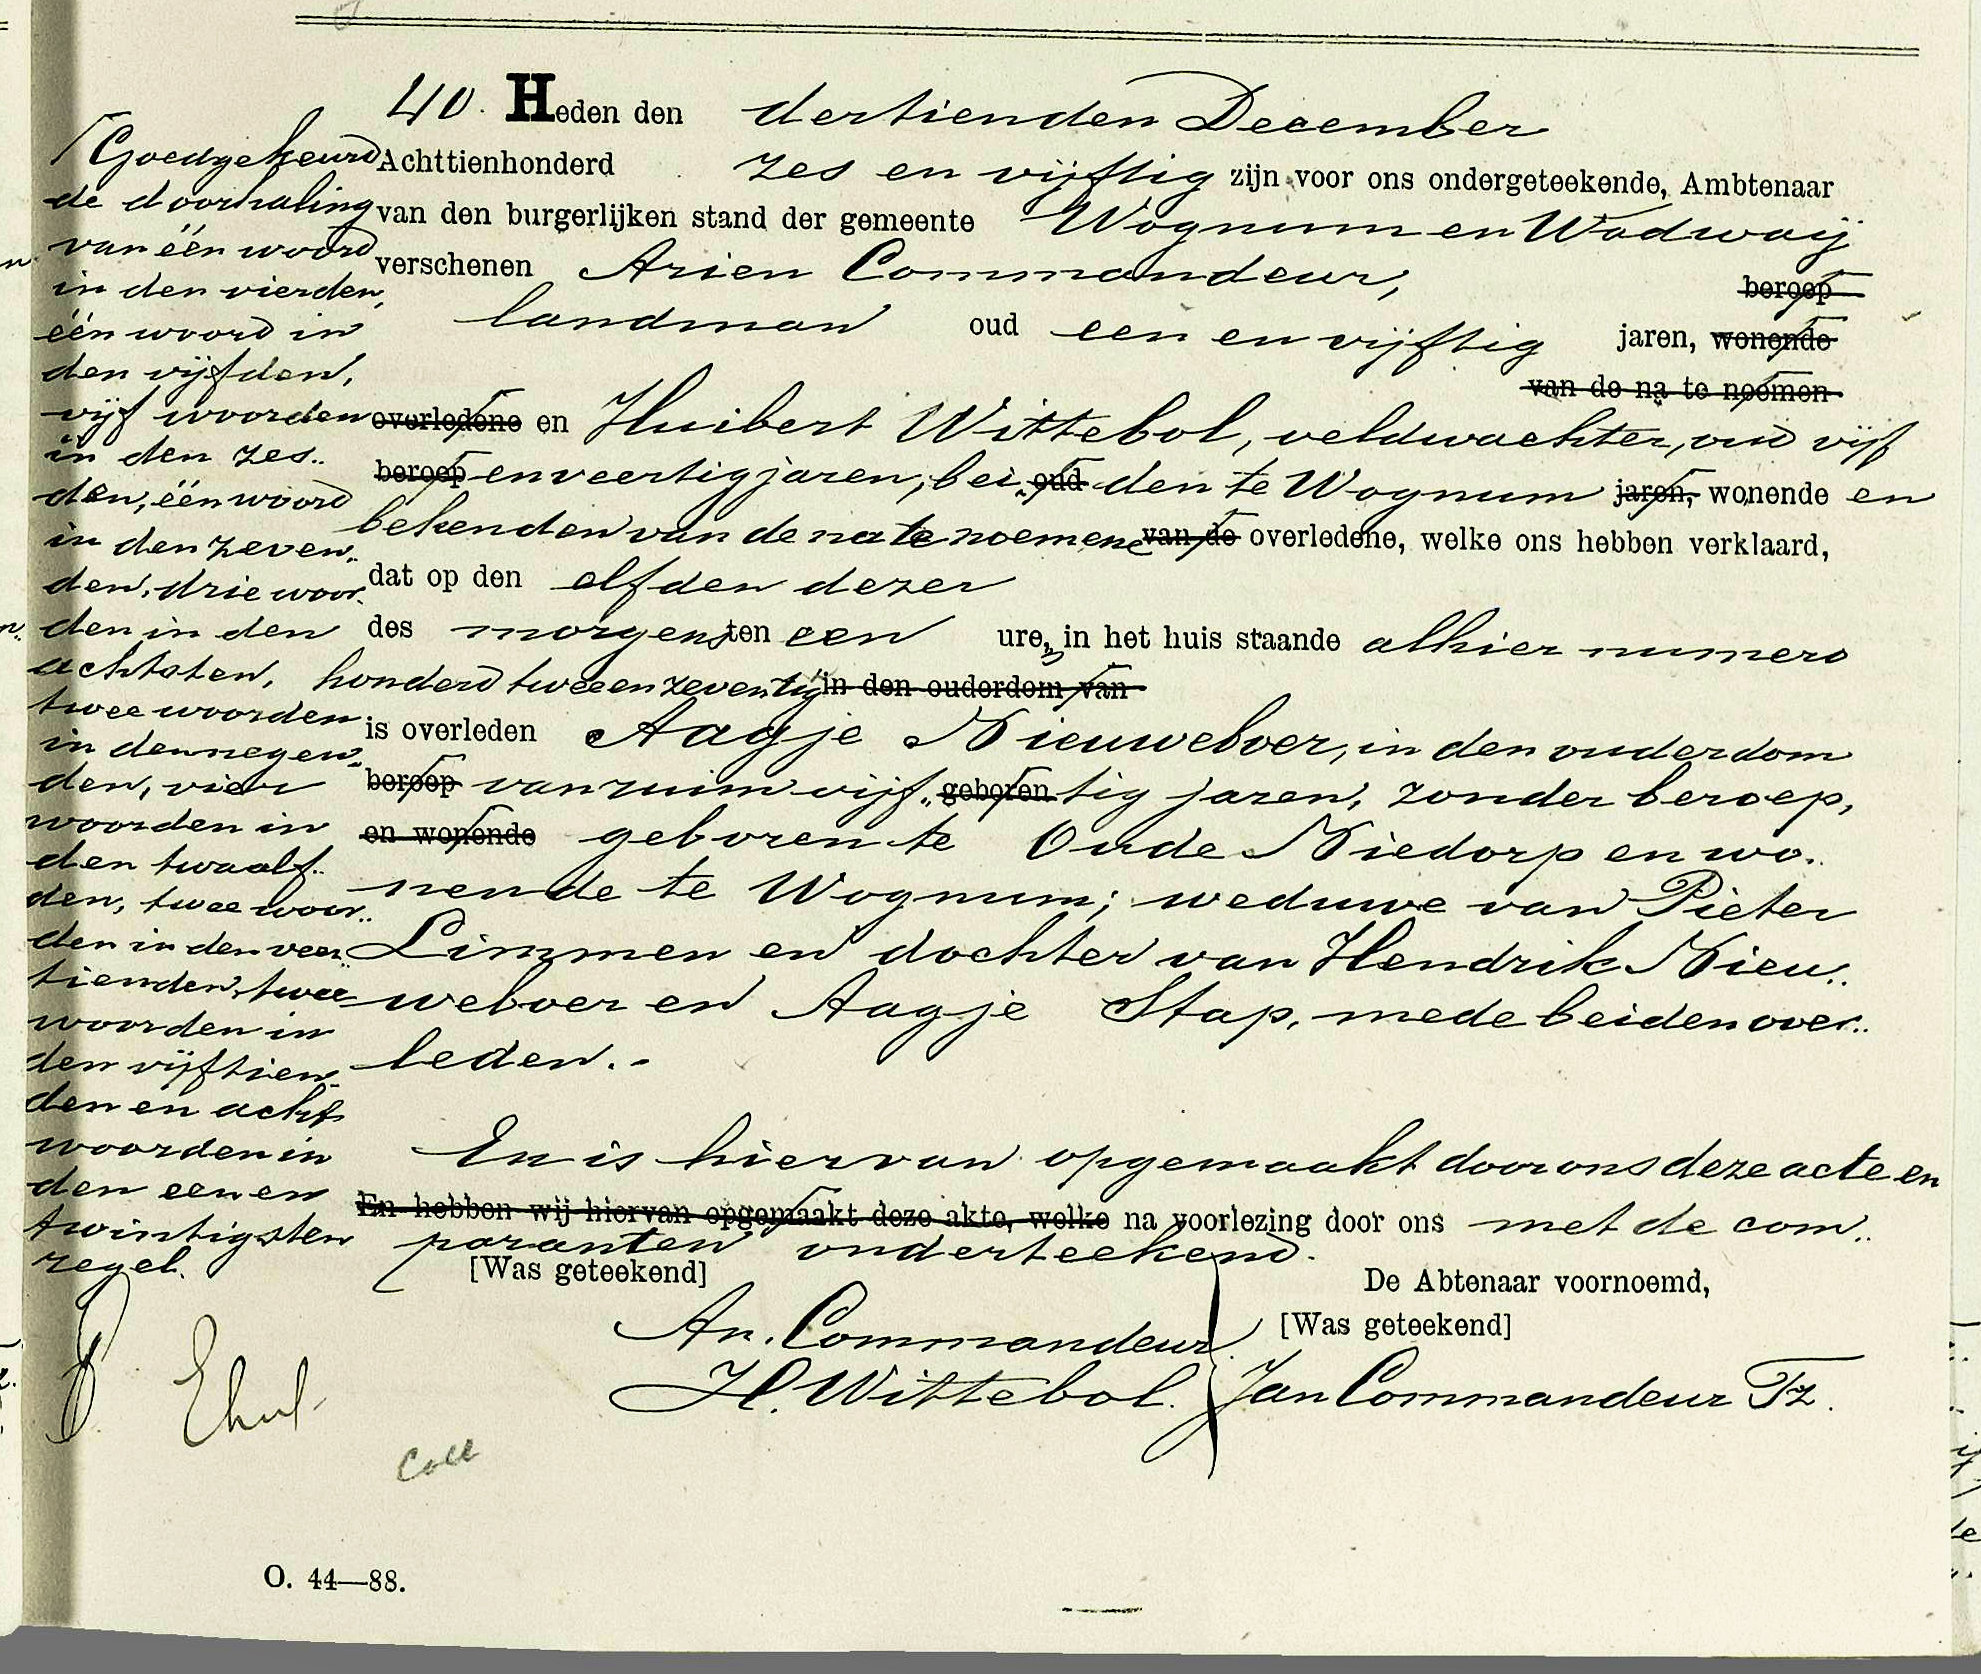 40. Heden den dertienden December
Achttienhonderd zes en vijftig zijn voor ons ondergeteekende, Ambtenaar
van den burgerlijken stand der gemeente Wognum en Wadwaij
verschenen Arien Commandeur, beroep
landman oud een en vijftig jaren, wonende
van de na te noemen
overledene en Huibert Wittebol, veldwachter, oud vijf
beroep en veertig jaren, bei„ oud den te Wognum jaren, wonende en
bekenden van de na te noemene van de overledene, welke ons hebben verklaard,
dat op den elfden dezer
des morgens ten een ure, in het huis staande alhier numero
honderd twee en zeventig in den ouderdom van
is overleden Aagje Nieuweboer, in den ouderdom
beroep van ruim vijf„ geboren tig jaren, zonder beroep,
en wonende geboren te Oude Niedorp en wo„
nende te Wognum; weduwe van Pieter
Limmen en dochter van Hendrik Nieu„
weboer en Aagje Stap, mede beiden over„
leden.-
En is hiervan opgemaakt door ons deze acte en
En hebben wij hiervan opgemaakt deze akte, welke na voorlezing door ons met de com„
paranten onderteekend.
[Was geteekend]
An. Commandeur.
H. Wittebol.
De Abtenaar voornoemd,
[Was geteekend]
Jan Commandeur Tz.
Goedgekeurd
de doorhaling
van één woord
in den vierden,
één woord in
den vijfden,
vijf woorden
in den zes„
den, één woord
in den zeven„
den, drie woor„
den in den
achtsten,
twee woorden
in den negen„
den, vier
woorden in
den twaalf„
den, twee woor„
den in den veer„
tienden, twee
woorden in
den vijftien„
den en acht
woorden in
den een en
twintigsten
regel.
Coll
O. 44—88.